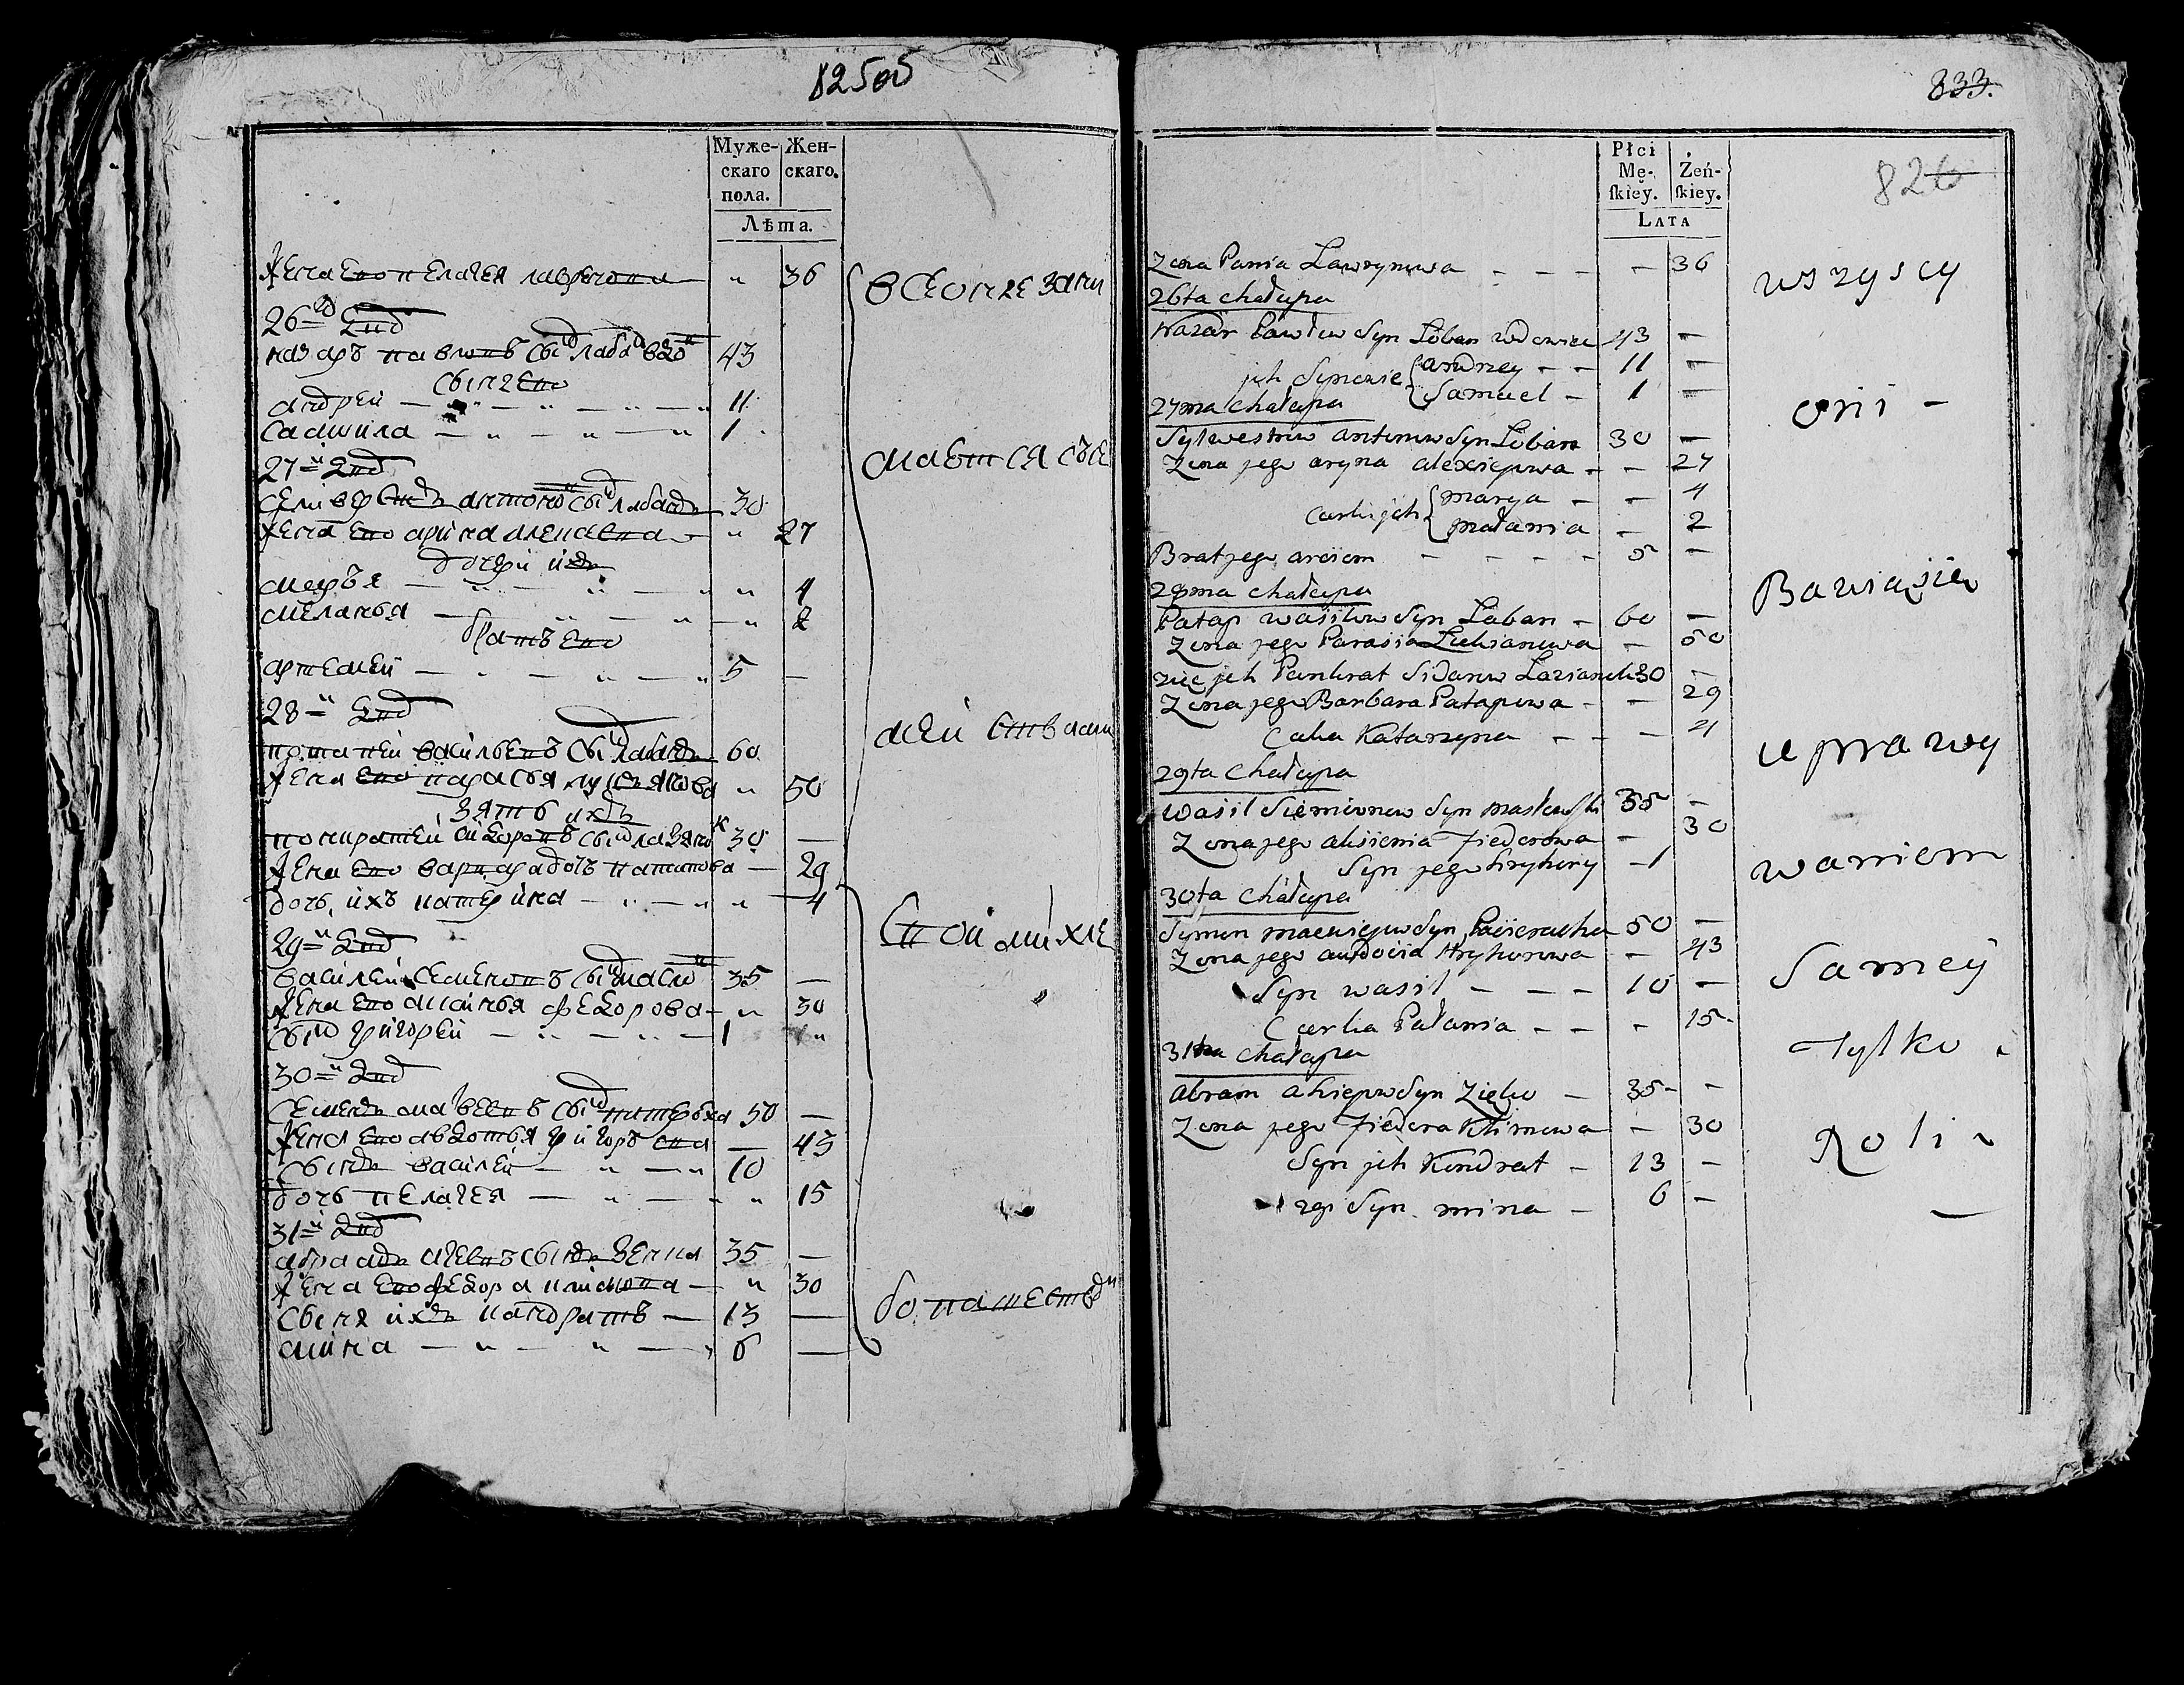 825об
Муже- Жен-
скаго скаго.
пола.
Лѣта.
жена ево пелагея лавренова " 36
26й двор
назаръ павловъ сынъ лабанъ вдо 43
сынъ ево
андрей 11
самуила 1
27й двор
селиверстъ антоновъ сынъ лабанъ 30
жена ево арина алексѣевна " 27
дочери ихъ
марья " 4
меланья " 2
братъ ево
артемей 5 —
28й двор
потапей васильевъ сынъ лабанъ 60
жена ево парасья лукьянова " 50
зять ихъ
понкратей сидоровъ сынъ лазянок 30 —
жена ево варвара дочь патапова — 29
дочь ихъ катерина " 4
29й двор
василей семеновъ сынъ 35 —
жена ево аксинья федорова " 30
сынъ григорей 1 "
30й двор
семенъ мавеевъ сынъ 50 —
жена ево авдотья григорьевна — 43
сынъ василей 10
дочь пелагея " 15
31й двор
абрамъ агеевъ сынъ зенка 35 —
жена ево федора климова " 30
сыны ихъ кандратъ 13 —
мина 6 —
все оне зани
маются сѣе
мей ствами
своими хле
бопашеством
833.
826
Płci
Mę- Żeń-
skiey. skiey.
LATA
Zona Pania Lawrynowa — 36
26ta chałupa
Nazar Pawłow Syn Loban wdowiec 43 —
jch Synowie Andrzey 11 —
Samuel 1 —
27ma chałupa
Sylwestrow antonow Syn Loban 30 —
Zona jego aryna alexiejowa — 27
Corki jch marya — 4
małania — 2
Brat jego arciem 5 —
28ma chałupa
Patap wasilow Syn Laban 60 —
Zona jego Parasia Lukianowa — 50
zięc jch Pankrat Sidarow Lazianek 30 —
Zona jego Barbara Patapowa — 29
Corka Katarzyna — 4
29ta Chałupa
wasil Siemionow Syn 35 —
Zona jego aksienia Fiederowa — 30
Syn jego hryhory — 1
30ta Chałupa
Symon maciejow Syn 50 —
Zona jego audocia Hryhorowa — 43
Syn wasil 10 —
Corka Pałania — 15
31ma chałupa
abram ahiejow Syn Zięko 35 —
Zona jego Fiedora Klimowa — 30
Syn jch Kondrat 13 —
2gi Syn mina 6 —
wszyscy
oni —
Bawią się
uprawy
waniem
Samey
Tylko
Roli
—